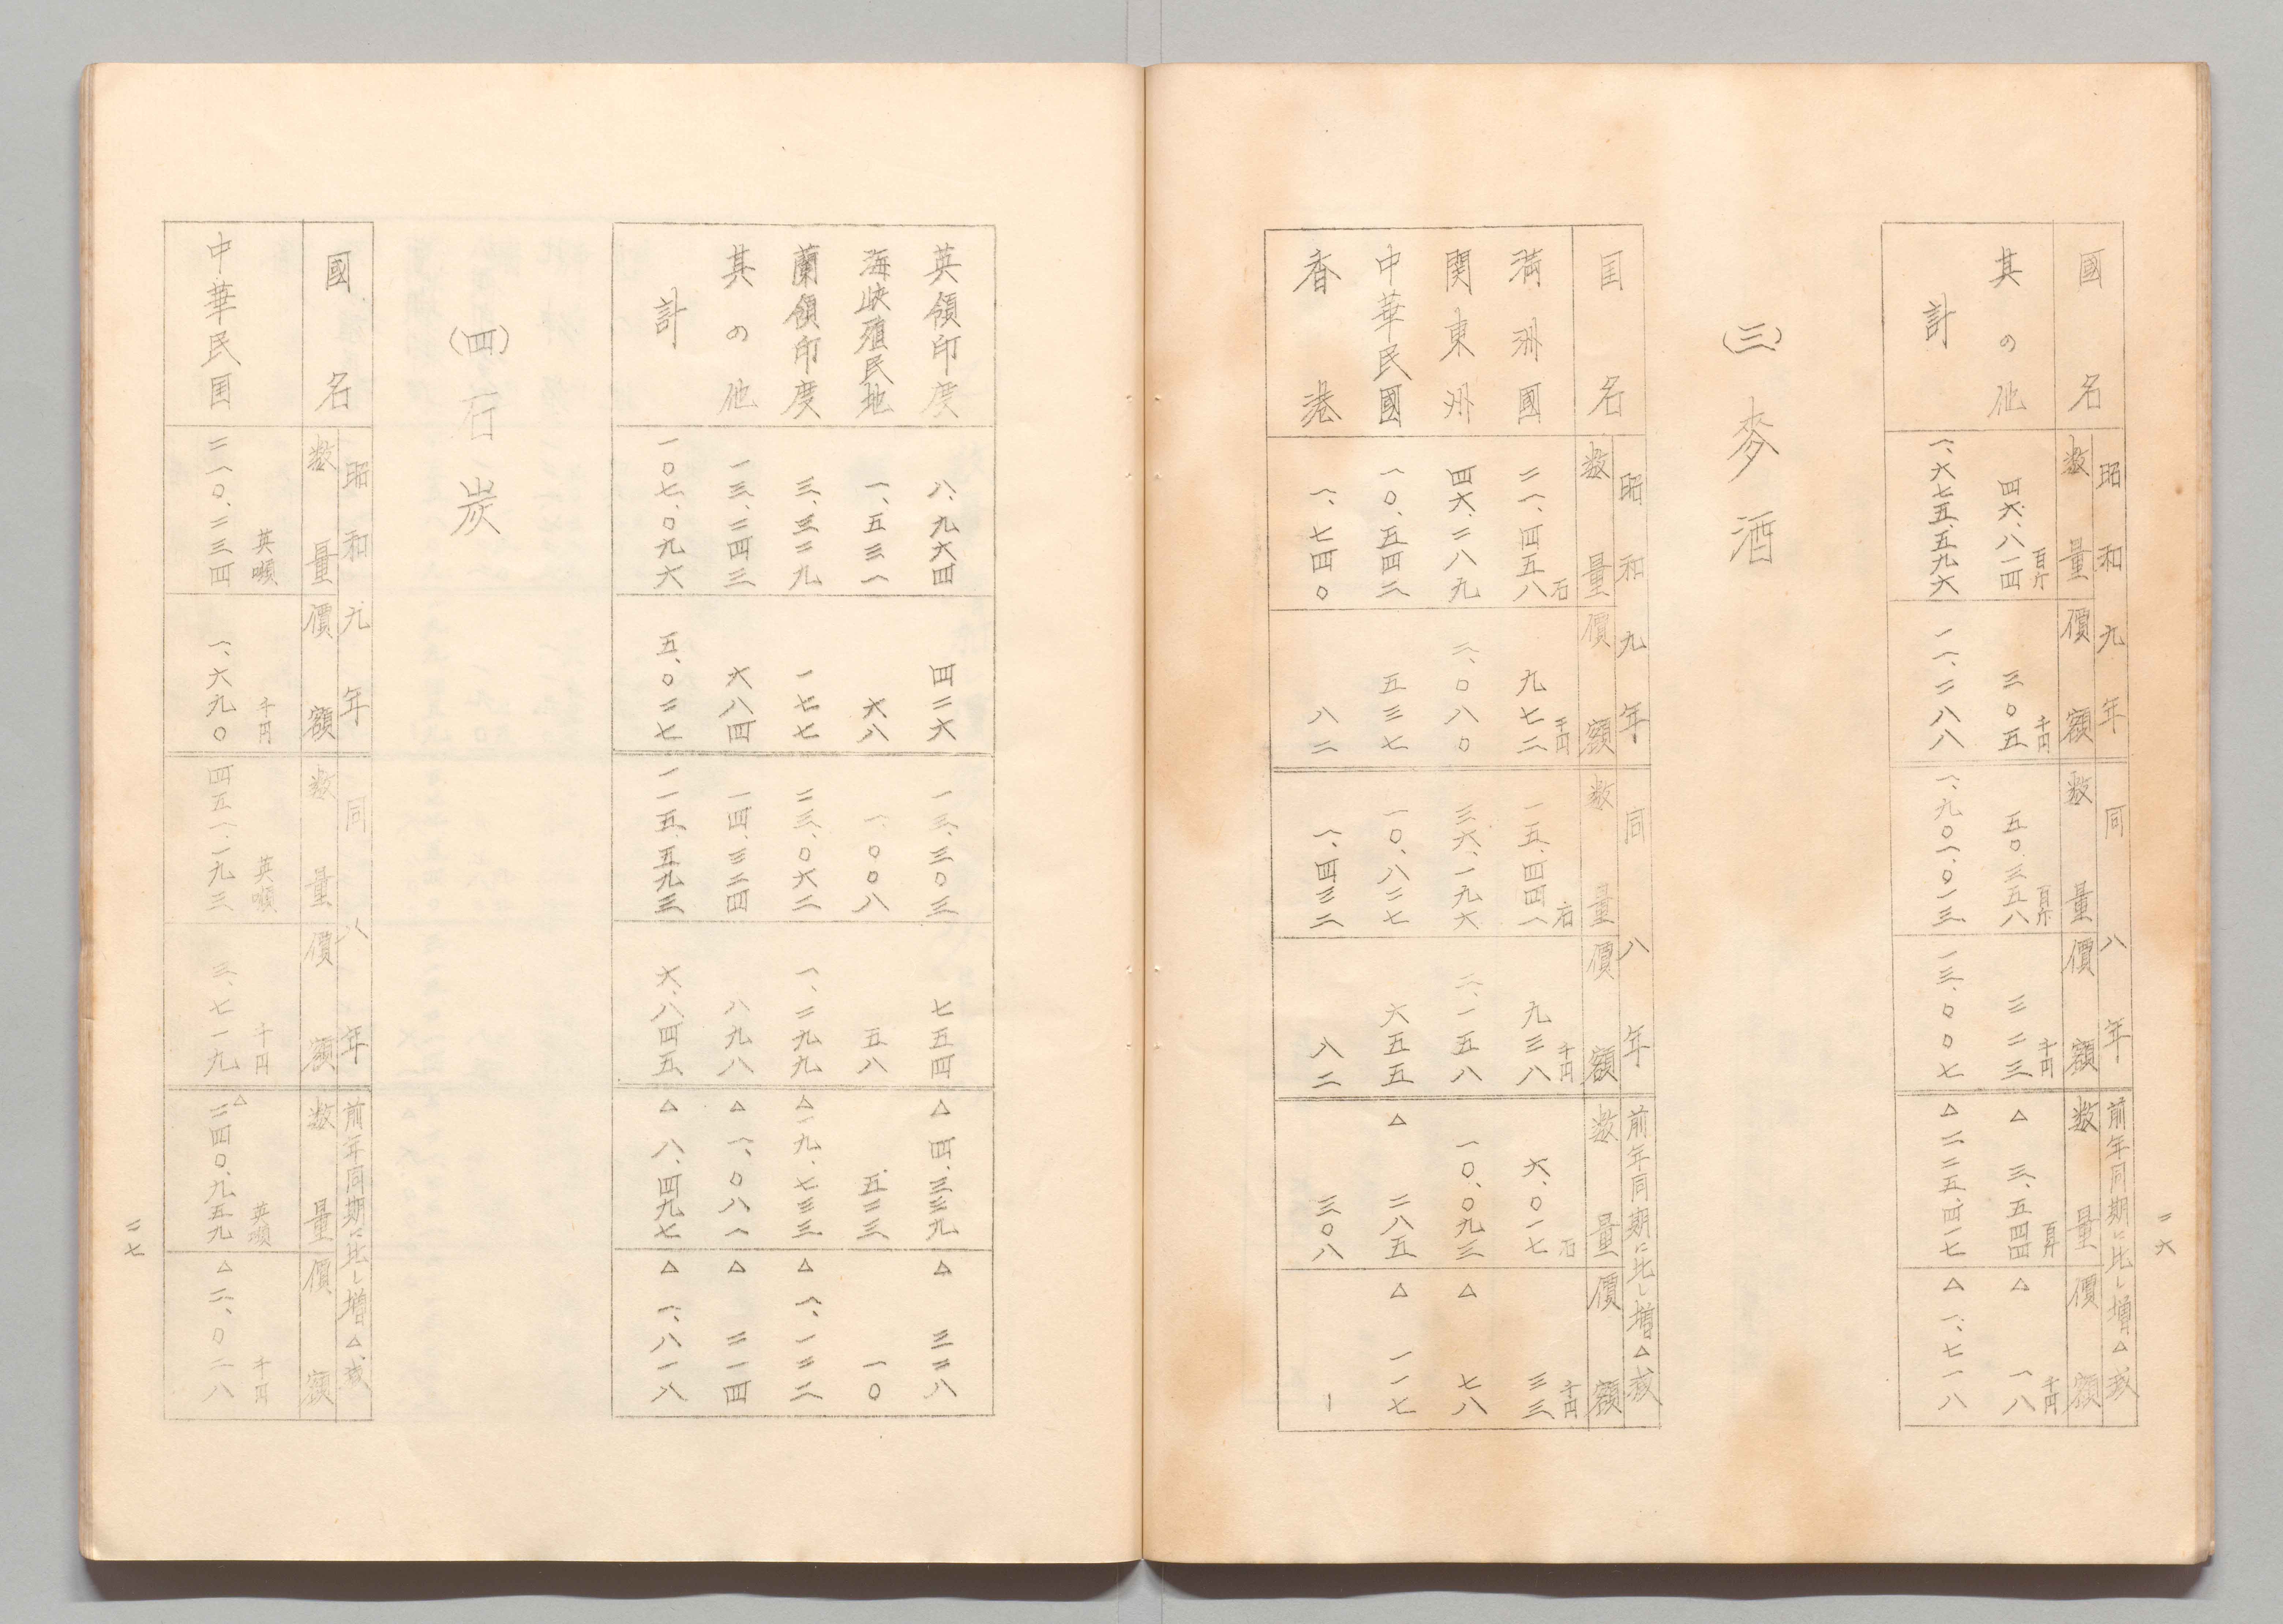 二六
昭和九年 同八年 前年同期に比し増△減
國名 数量 價額 数量 價額 数量 價額
百斤 千円 百斤 千円 百斤 千円
其の他 四六、八一四 三〇五 五〇、三五八 三二三 △三、五四四 △一八
計 一、六七五、五九六 一一、二八八 一、九〇一、〇一三 一三、〇〇七 △二二五、四一七 △一、七一八
(三)麥酒
昭和九年 同八年 前年同期に比し増△減
囯名 数量 價額 数量 價額 数量 價額
石 千円 石 千円 石 千円
満洲國 二一、四五八 九七二 一五、四四一 九三八 六、〇一七 三三
関東州 四六、二八九 二、〇八〇 三六、一九六 二、一五八 一〇、〇九三 △七八
中華民國 一〇、五四二 五三七 一〇、八二七 六五五 △二八五 △一一七
香港 一、七四〇 八二 一、四三二 八二 三〇八 ー
英領印度 八、九六四 四二六 一三、三〇三 七五四 △四、三三九 △三二八
海峡殖民地 一、五三一 六八 一、〇〇八 五八 五二三 一〇
蘭領印度 三、三二九 一七七 二三、〇六二 一、二九九 △一九、七三三 △一、一二二
其の他 一三、二四三 六八四 一四、三二四 八九八 △一、〇八一 △二一四
計 一〇七、〇九六 五、〇二七 一一五、五九三 六、八四五 △八、四九七 △一、八一八
(四)石炭
昭和九年 同八年 前年同期に比し増△減
國名 数量 價額 数量 價額 数量 價額
英噸 千円 英噸 千円 英噸 千円
中華民囯 二一〇、二三四 一、六九〇 四五一、一九三 三、七一九 △二四〇、九五九 △二、〇二八
二七